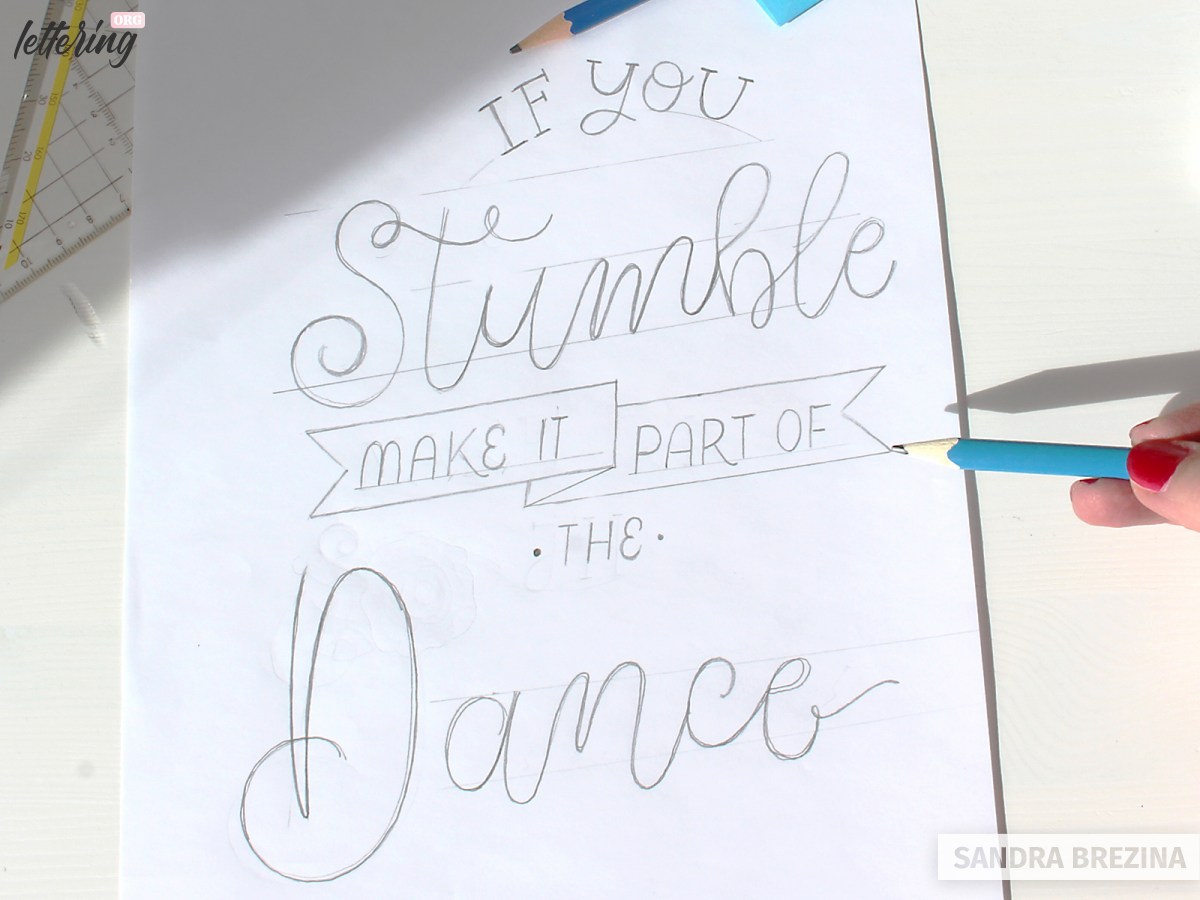 lettering
ORG
IF YOU
Stumble
MAKE IT PART OF
· THE ·
Dance
SANDRA BREZINA